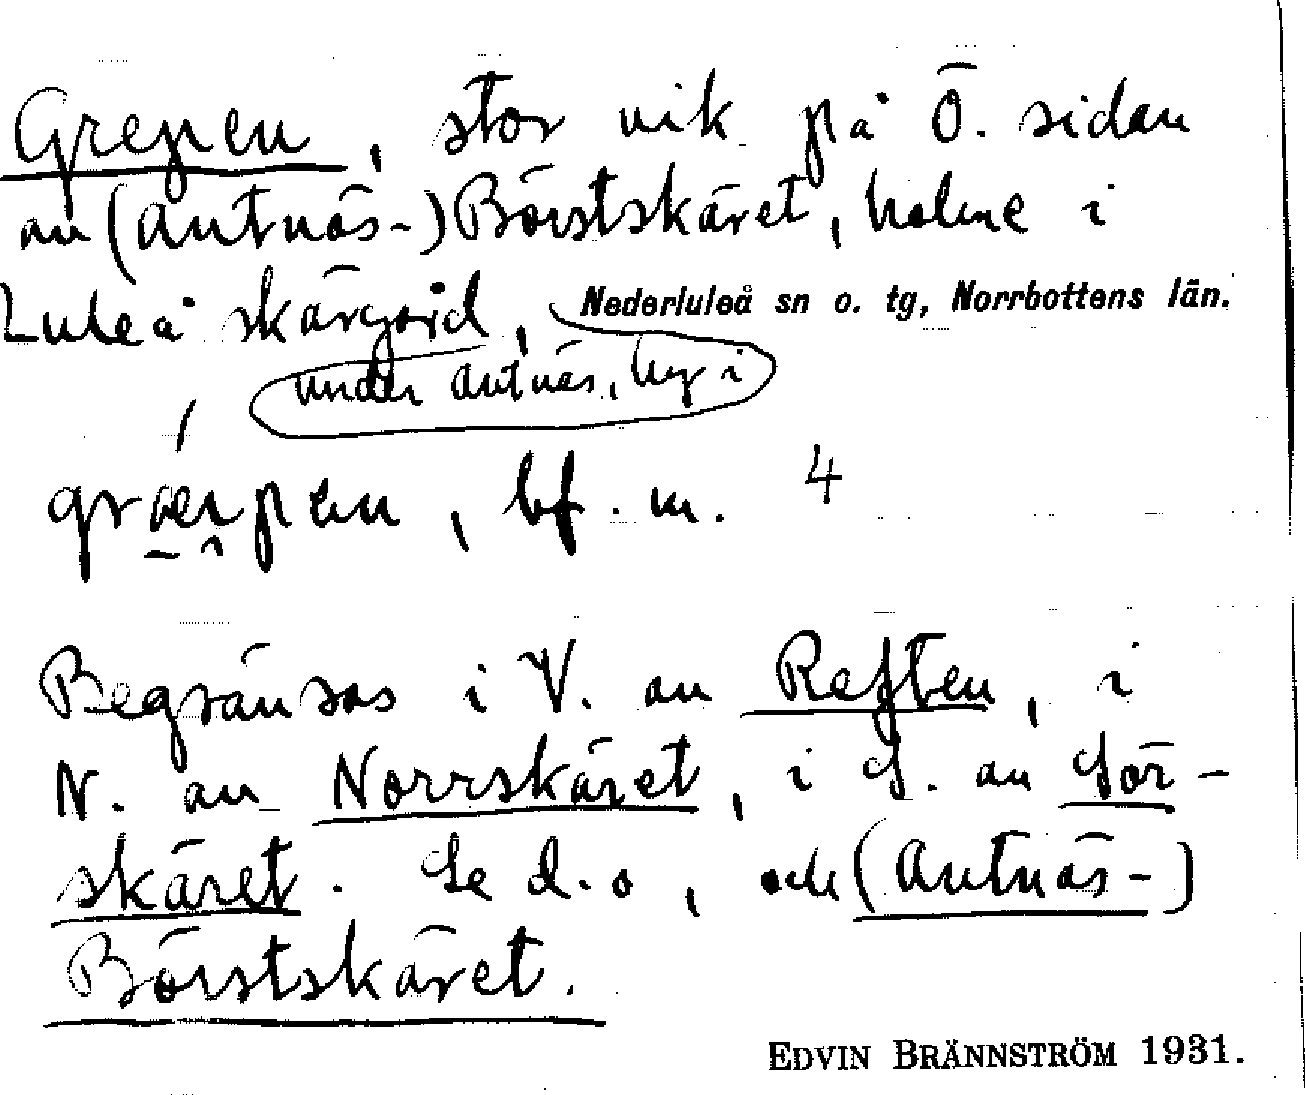 Grepen, stor vik på Ö. sidan
av (Antnäs-) Börstskäret, holme i
Luleå skärgård, Nederluleå sn o. tg, Norrbottens län.
under Antnäs, by i
bf. m. 4
Begränsas i V. av Reften, i
N. av Norrskäret, i S. av Sör-
skäret. Se d. o, och (Antnäs-)
Börstskäret.
EDVIN BRÄNNSTRÖM 1931.